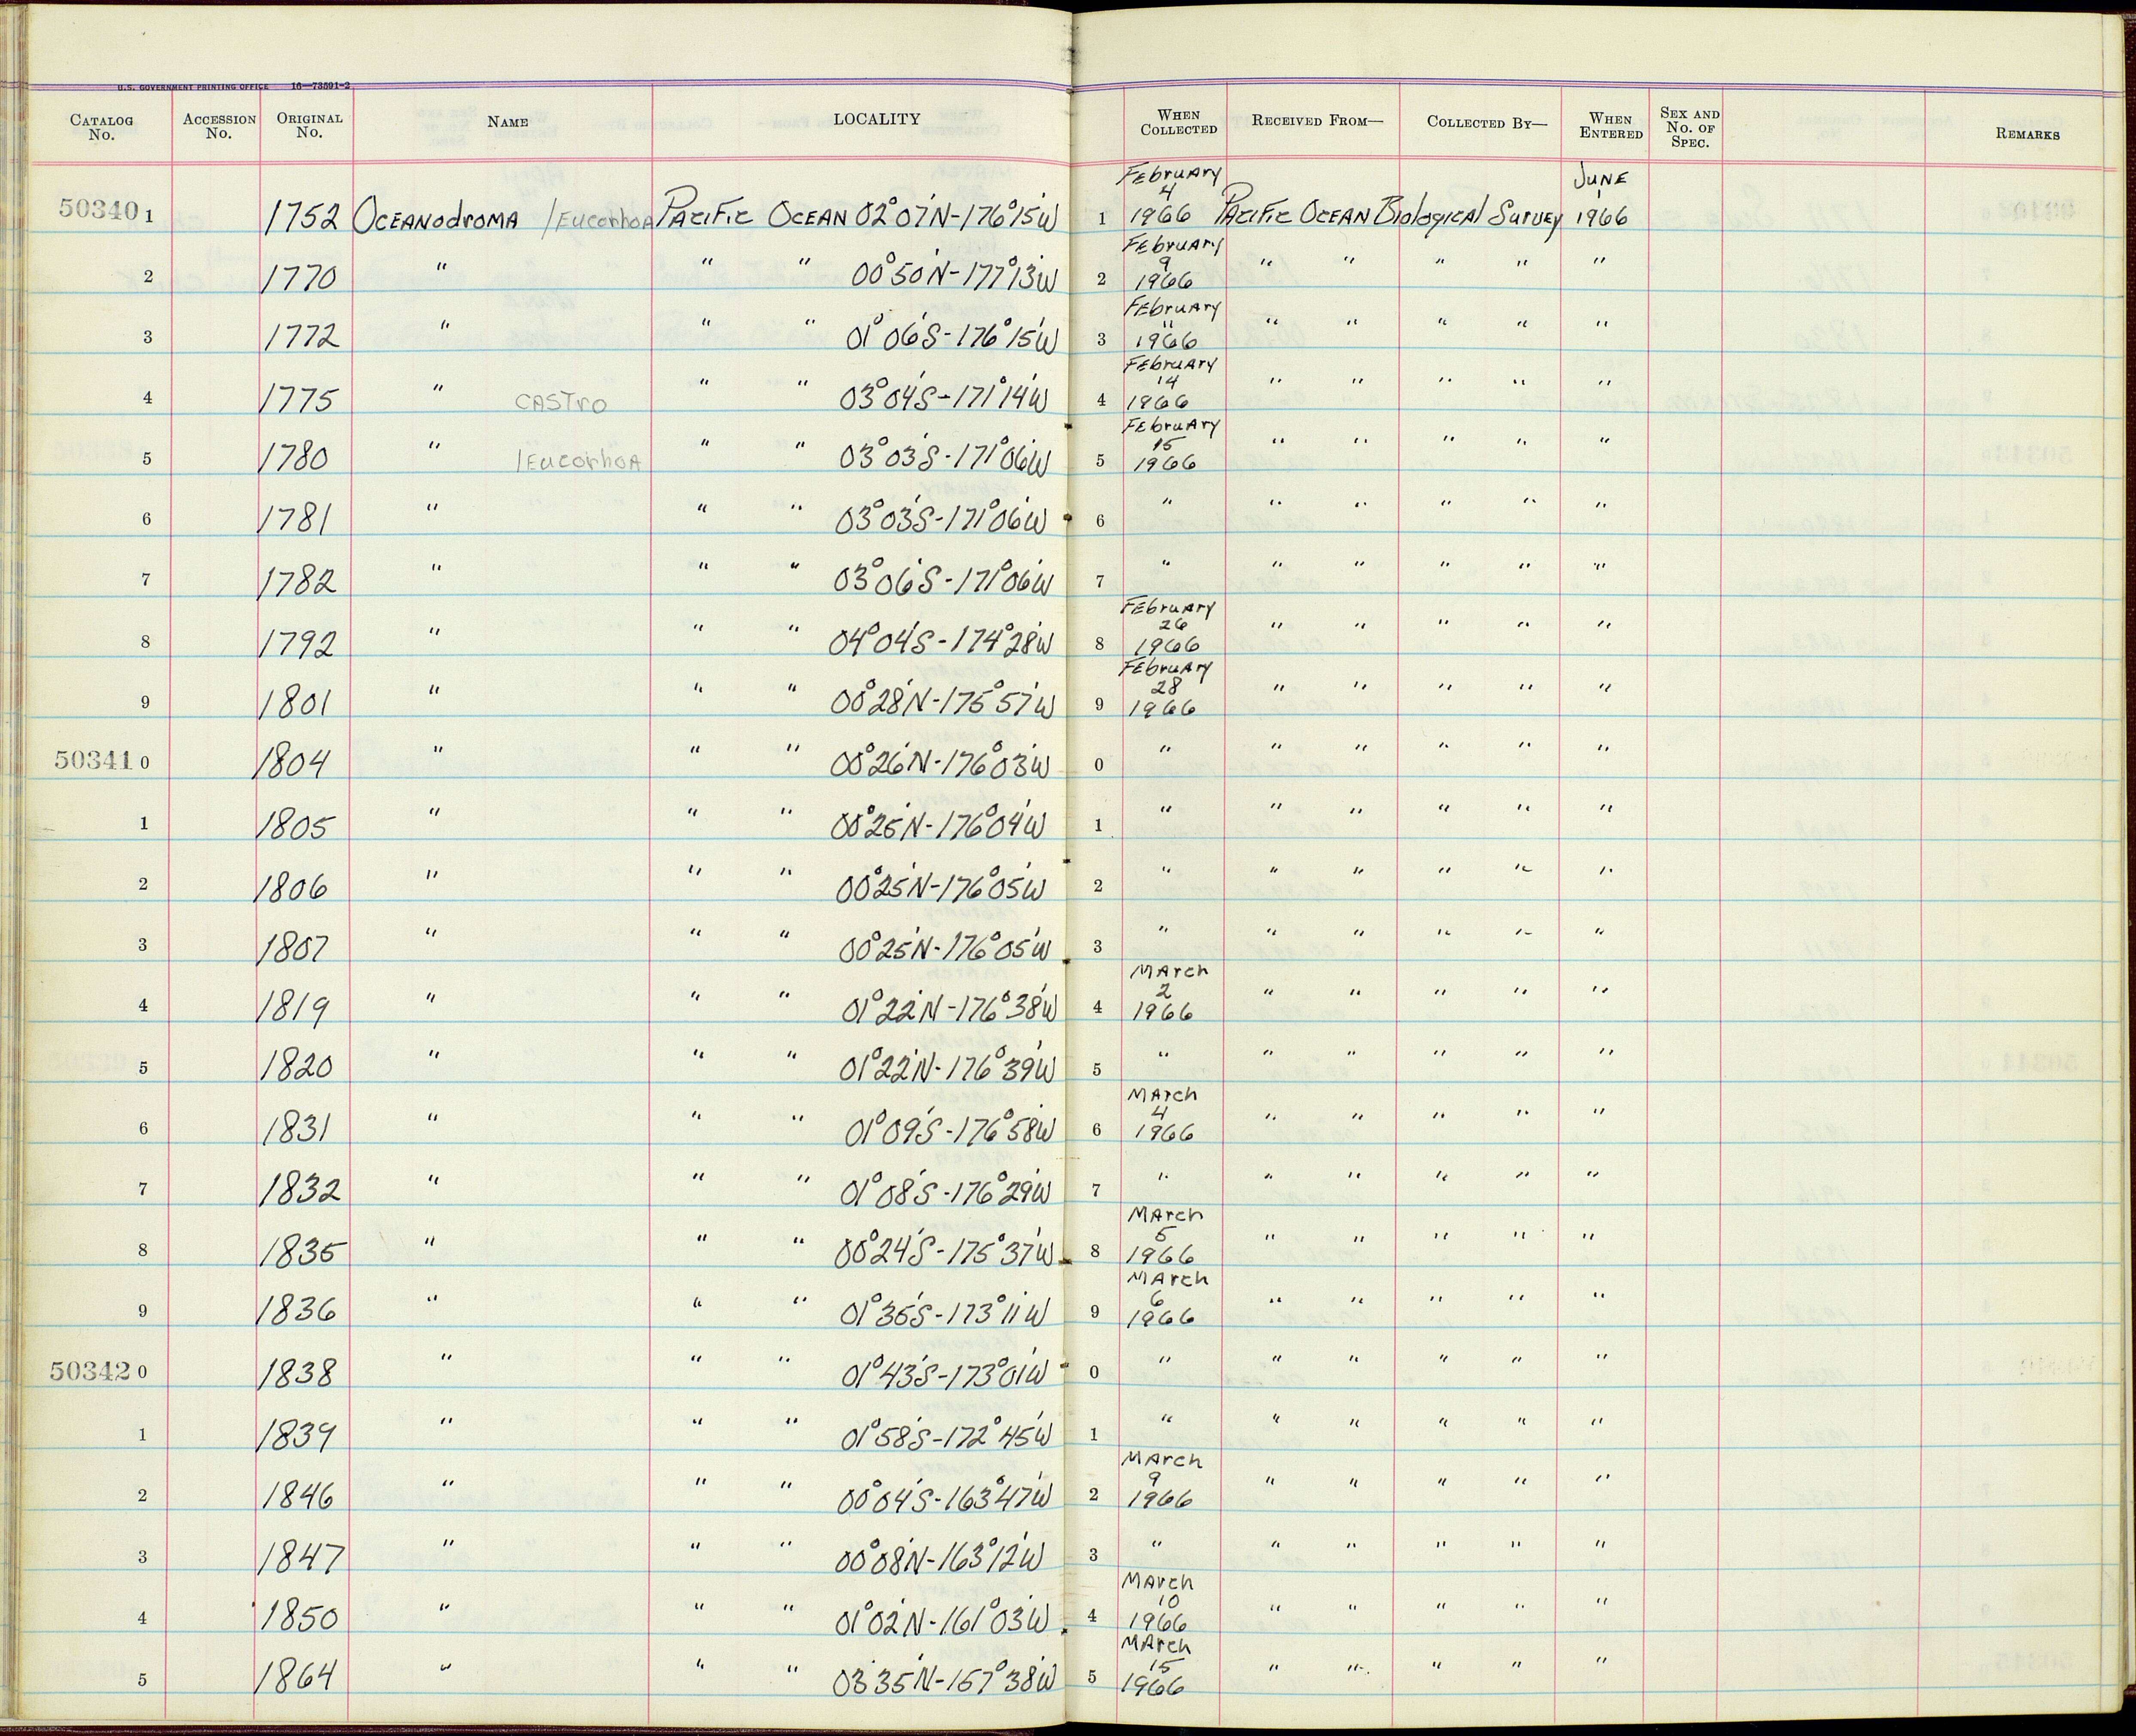 U.S. GOVERNMENT PRINTING OFFICE 16—73591-2
CATALOG No. ACCESSION No. ORIGINAL No. NAME LOCALITY WHEN COLLECTED RECEIVED FROM— COLLECTED BY— WHEN ENTERED SEX AND No. OF SPEC. REMARKS
50340 1 1752 OCEANodroMA leucorhoA PAciFic OCEAN 02°07'N-176°15'W 1 FEbruAry 4 1966 PAciFic OCEAN BiologicAl SurvEy JUNE 1 1966
2 1770 " " " 00°50'N-177°13'W 2 FEbruAry 9 1966 " " " " "
3 1772 " " " 01°06'S-176°15'W 3 FEbruAry " 1966 " " " " "
4 1775 " CASTro " " 03°04'S-171°14'W 4 FEbruAry 14 1966 " " " " "
5 1780 " lEucorhoA " " 03°03'S-171°06'W 5 FEbruAry 15 1966 " " " " "
6 1781 " " " 03°03'S-171°06'W 6 " " " " " "
7 1782 " " " 03°06'S-171°06'W 7 " " " " " "
8 1792 " " " 04°04'S-174°28'W 8 FEbruAry 26 1966 " " " " "
9 1801 " " " 00°28'N-175°57'W 9 FEbruAry 28 1966 " " " " "
50341 0 1804 " " " 00°26'N-176°03'W 0 " " " " " "
1 1805 " " " 00°25'N-176°04'W 1 " " " " " "
2 1806 " " " 00°25'N-176°05'W 2 " " " " " "
3 1807 " " " 00°25'N-176°05'W 3 " " " " " "
4 1819 " " " 01°22'N-176°38'W 4 MArch 2 1966 " " " " "
5 1820 " " " 01°22'N-176°39'W 5 " " " " " "
6 1831 " " " 01°09'S-176°58'W 6 MArch 4 1966 " " " " "
7 1832 " " " 01°08'S-176°29'W 7 " " " " " "
8 1835 " " " 00°24'S-175°37'W 8 MArch 5 1966 " " " " "
9 1836 " " " 01°35'S-173°11'W 9 MArch 6 1966 " " " " "
50342 0 1838 " " " 01°43'S-173°01'W 0 " " " " " "
1 1839 " " " 01°58'S-172°45'W 1 " " " " " "
2 1846 " " " 00°04'S-163°47'W 2 MArch 9 1966 " " " " "
3 1847 " " " 00°08'N-163°12'W 3 " " " " " "
4 1850 " " " 01°02'N-161°03'W 4 MArch 10 1966 " " " " "
5 1864 " " " 03°35'N-157°38'W 5 MArch 15 1966 " " " " "